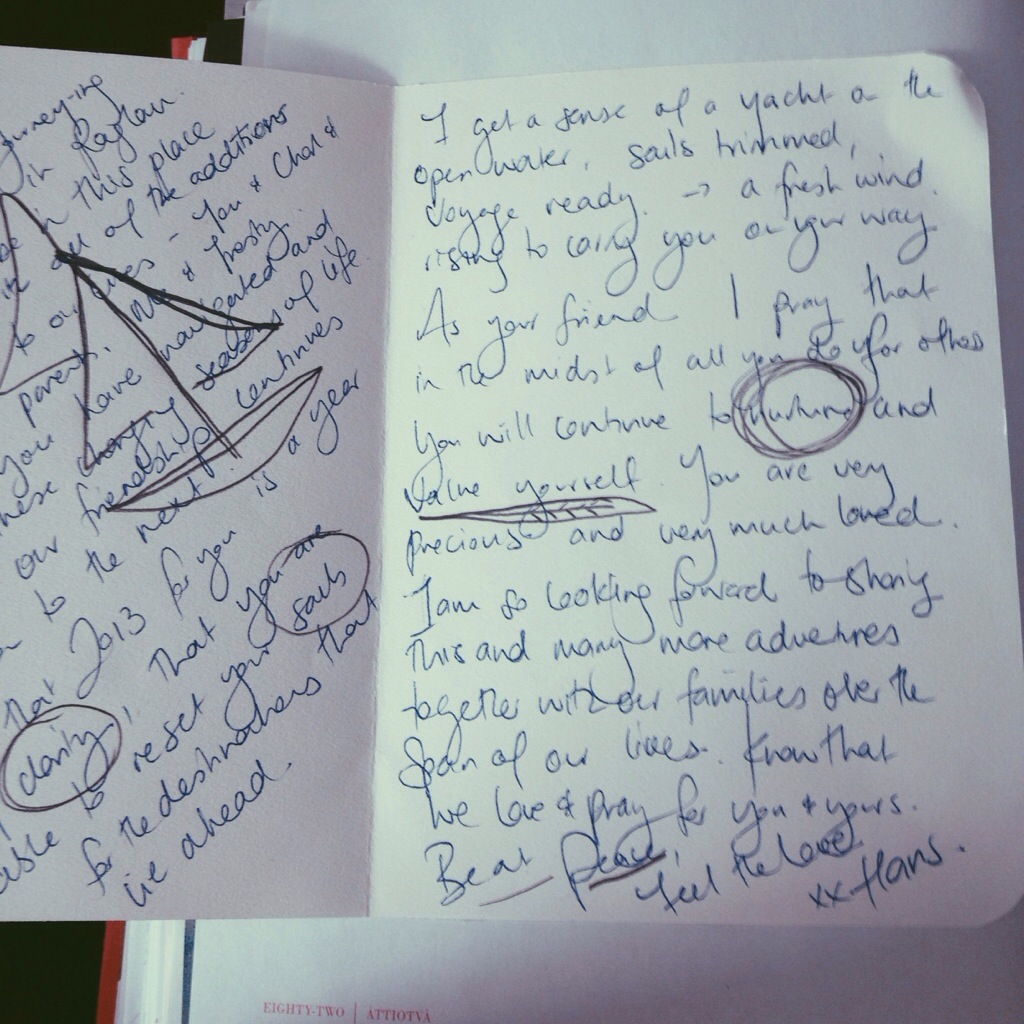 journey-ing
in Raglan.
in this place
all of the additions
to our lives - You & Chad &
Me & frosty.
parent.
you have navigated and
these changing seasons of life.
our friendship continues
to the next.
that 2013 for you is a year
clarity! That you are
able to reset your sails
for the destinations that
lie ahead.
I get a sense of a yacht on the
open water, sails trimmed,
Voyage ready. → a fresh wind.
rising to carry you on your way
As your friend I pray that
in the midst of all you do for others
you will continue to nurture and
value yourself. You are very
precious and very much loved.
I am so looking forward to sharing
this and many more adventures
together with our families over the
span of our lives. Know that
we love & pray for you & yours.
Be at peace,
feel the love
xx Hans.
EIGHTY-TWO | ÅTTIOTVÅ